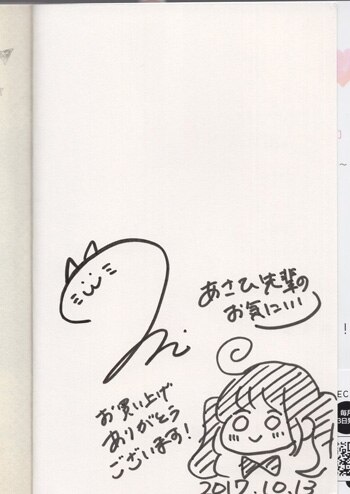 あさひ先輩の
お気に…
お買い上げ
ありがとう
ございます!
2017.10.13
!
EC
毎月
3日発